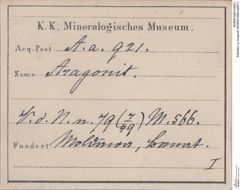 K. K. Mineralogisches Museum.
Acq. Post A. a. 921.
Name Aragonit.
V. d. N. n. 79 (7/49) M. 566.
Fundort Moldawa, Banat.
I